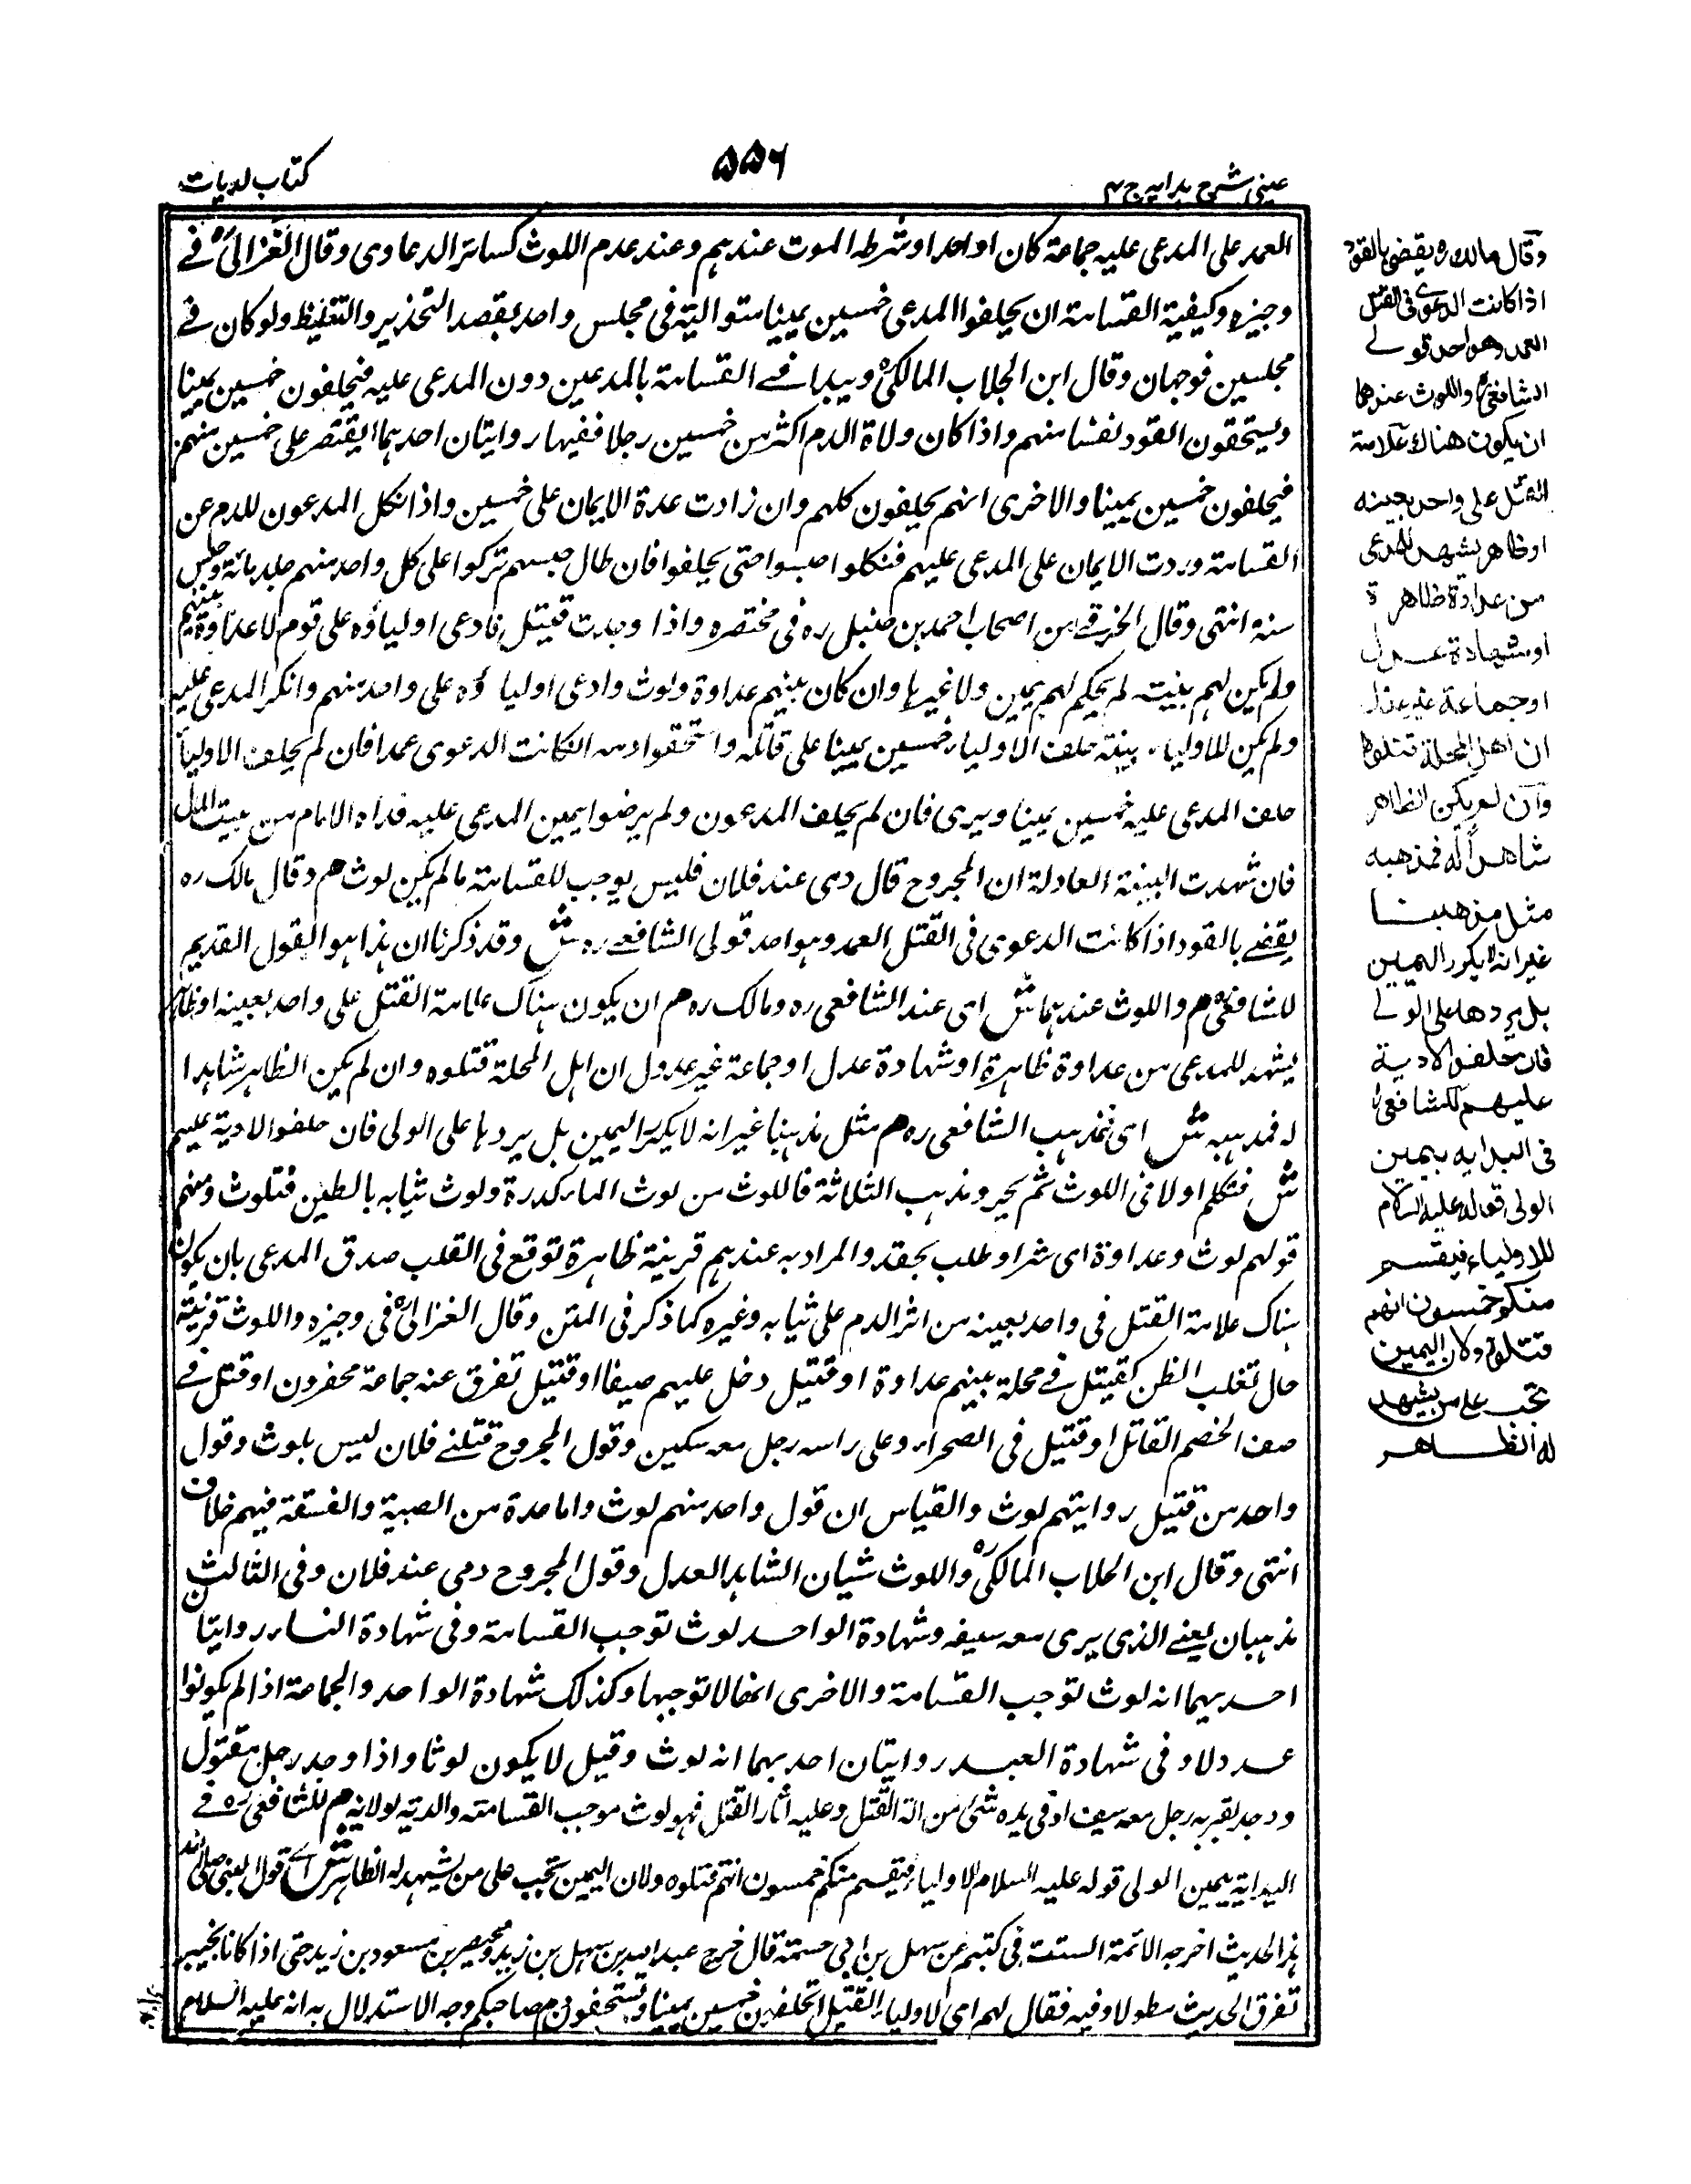 عینی شرح ہدایہ ج ۴
۵۵۶
کتاب الدیات
العمد علی المدعی علیہ جماعة کان او واحدا وشرطہ الموت عندہم وعند عدم اللوث کسائر الدعاوی وقال الغزالیؒ فی
وجیزہ وکیفیة القسامة ان یحلفوا المدعی خمسین یمینا متوالیة فی مجلس واحد بقصد التحذیر والتغلیظ ولو کان فی
مجلسین فوجہان وقال ابن الجلاب المالکیؒ ویبدأ فی القسامة بالمدعین دون المدعی علیہ فیحلفون خمسین یمینا
ویستحقون القود نفسا منہم واذا کان ولاة الدم اکثر من خمسین رجلا ففیہا روایتان احدہما یقتصر علی خمسین منہم
فیحلفون خمسین یمینا والاخری انہم یحلفون کلہم وان زادت عدة الایمان علی خمسین واذا نکل المدعون للدم عن
القسامة وردت الایمان علی المدعی علیہم فنکلوا حبسوا حتی یحلفوا فان طال حبسہم ترکوا علی کل واحد منہم جلد مائة وحبس
سنة انتہی وقال الخرقی من اصحاب احمد بن حنبل رہ فی مختصرہ واذا وجدت قتیل فادعی اولیاؤہ علی قوم لا عداوة بینہم
ولم یکن لہم بینة لم یحکم لہم یمین ولا غیرہا وان کان بینہم عداوة ولوث وادعی اولیاؤہ علی واحد منہم وانکر المدعی علیہ
ولم یکن للاولیاء بینة حلف الاولیاء خمسین یمینا علی قاتلہ واستحقوا دمہ انکانت الدعوی عمدا فان لم یحلف الاولیاء
حلف المدعی علیہ خمسین یمینا ویبری فان لم یحلف المدعون ولم یرضوا بیمین المدعی علیہ فداہ الامام من بیت المال
فان شہدت البینة العادلة ان المجروح قال دمی عند فلان فلیس یوجب للقسامة ما لم یکن لوث ھم وقال مالک رہ
یقضی بالقود اذا کانت الدعوی فی القتل العمد وہو احد قولی الشافعی رہ ش وقد ذکرنا ان ہذا ہو القول القدیم
للشافعیؒ ھم واللوث عندہما ش ای عند الشافعی رہ ومالک رہ ھم ان یکون ہناک علامة القتل علی واحد بعینہ او ظاہر
یشہد للمدعی من عداوة ظاہرة او شہادة عدل او جماعة غیر عدول ان اہل المحلة قتلوہ وان لم یکن الظاہر شاہدا
لہ فمذہبہ ش ای فمذہب الشافعی رہ ھم مثل مذہبنا غیر انہ لا یکرر الیمین بل یردہا علی الولی فان حلفوا لا دیة علیہم
ش فتکلم اولا فی اللوث ثم یحرر مذہب الثلاثة فاللوث من لوث الماء کدرة ولوث ثیابہ بالطین فتلوث ومنہم
قولہم لوث وعداوة ای شر او طلب بحقد والمراد بہ عندہم قرینة ظاہرة توقع فی القلب صدق المدعی بان یکون
ہناک علامة القتل فی واحد بعینہ من اثر الدم علی ثیابہ وغیرہ کما ذکر فی المتن وقال الغزالیؒ فی وجیزہ واللوث قرینة
حال تغلب الظن کقتیل فی محلة بینہم عداوة او قتیل دخل علیہم ضیفا او قتیل تفرق عنہ جماعة محفرون او قتل فی
صف الخصم القاتل او قتیل فی الصحراء وعلی راسہ رجل معہ سکین وقول المجروح قتلنی فلان لیس بلوث وقول
واحد من قتیل روایتہم لوث والقیاس ان قول واحد منہم لوث واما حدة من الصبیة والفسقة فیہم خلاف
انتہی وقال ابن الجلاب المالکیؒ واللوث شیان الشاہد العدل وقول المجروح دمی عند فلان وفی الثالث
مذہبان یعنی الذی یری معہ سیفہ وشہادة الواحد لوث توجب القسامة وفی شہادة النساء روایتان
احدیہما انہ لوث توجب القسامة والاخری انہا لا توجبہا وکذلک شہادة الواحد والجماعة اذا لم یکونوا
عدولا وفی شہادة العبد روایتان احدیہما انہ لوث وقیل لا یکون لوثا واذا وجد رجل مقتول
ووجد بقربہ رجل معہ سیف او فی یدہ شئ من الة القتل وعلیہ اثار القتل فہو لوث موجب القسامة والدیة لولاتہ ھم للشافعی رہ فی
البدایة بیمین الولی قولہ علیہ السلام للاولیاء فیقسم منکم خمسون انہم قتلوہ ولان الیمین تجب علی من یشہد لہ الظاہر ش ای قول النبی صلی اللہ
ہذا الحدیث اخرجہ الائمة الستة فی کتبہم عن سہل بن ابی حثمة قال خرج عبد اللہ بن سہل بن زید ومحیصة بن مسعود بن زید حتی اذا کانا بخیبر
تفرق الحدیث مطولا وفیہ فقال لہم ای لاولیاء القتیل اتحلفون خمسین یمینا وتستحقون دم صاحبکم وجہ الاستدلال بہ انہ علیہ السلام
وقال مالک رہ یقضی بالقود
اذا کانت الدعوی فی القتل
العمد وهو احد قولی
الشافعیؒ واللوث عندهما
ان یکون هناک علامة
القتل علی واحد بعینه
او ظاهر یشهد للمدعی
من عداوة ظاهرة
او شهادة عدل
او جماعة غیر عدل
ان اهل المحلة قتلوه
وان لم یکن الظاهر
شاهداً له فمذهبه
مثل مذهبنا
غیر انه لا یکرر الیمین
بل یردها علی الولی
فان حلفوا لا دیة
علیهم للشافعیؒ
فی البدایه بیمین
الولی قوله علیه السلام
للاولیاء فیقسم
منکم خمسون انهم
قتلوه ولان الیمین
تجب علی من یشهد
له الظاهر